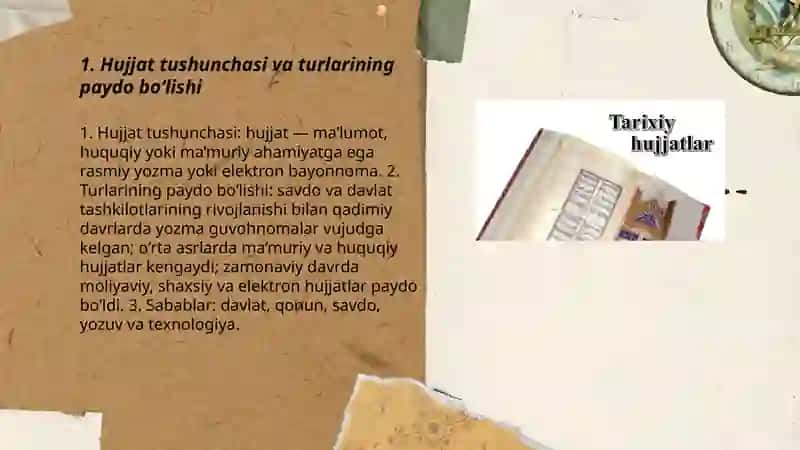 1. Hujjat tushunchasi va turlarining
paydo bo‘lishi
1. Hujjat tushunchasi: hujjat — ma'lumot,
huquqiy yoki ma'muriy ahamiyatga ega
rasmiy yozma yoki elektron bayonnoma. 2.
Turlarining paydo bo'lishi: savdo va davlat
tashkilotlarining rivojlanishi bilan qadimiy
davrlarda yozma guvohnomalar vujudga
kelgan; o'rta asrlarda ma'muriy va huquqiy
hujjatlar kengaydi; zamonaviy davrda
moliyaviy, shaxsiy va elektron hujjatlar paydo
bo'ldi. 3. Sabablar: davlat, qonun, savdo,
yozuv va texnologiya.
Tarixiy
hujjatlar